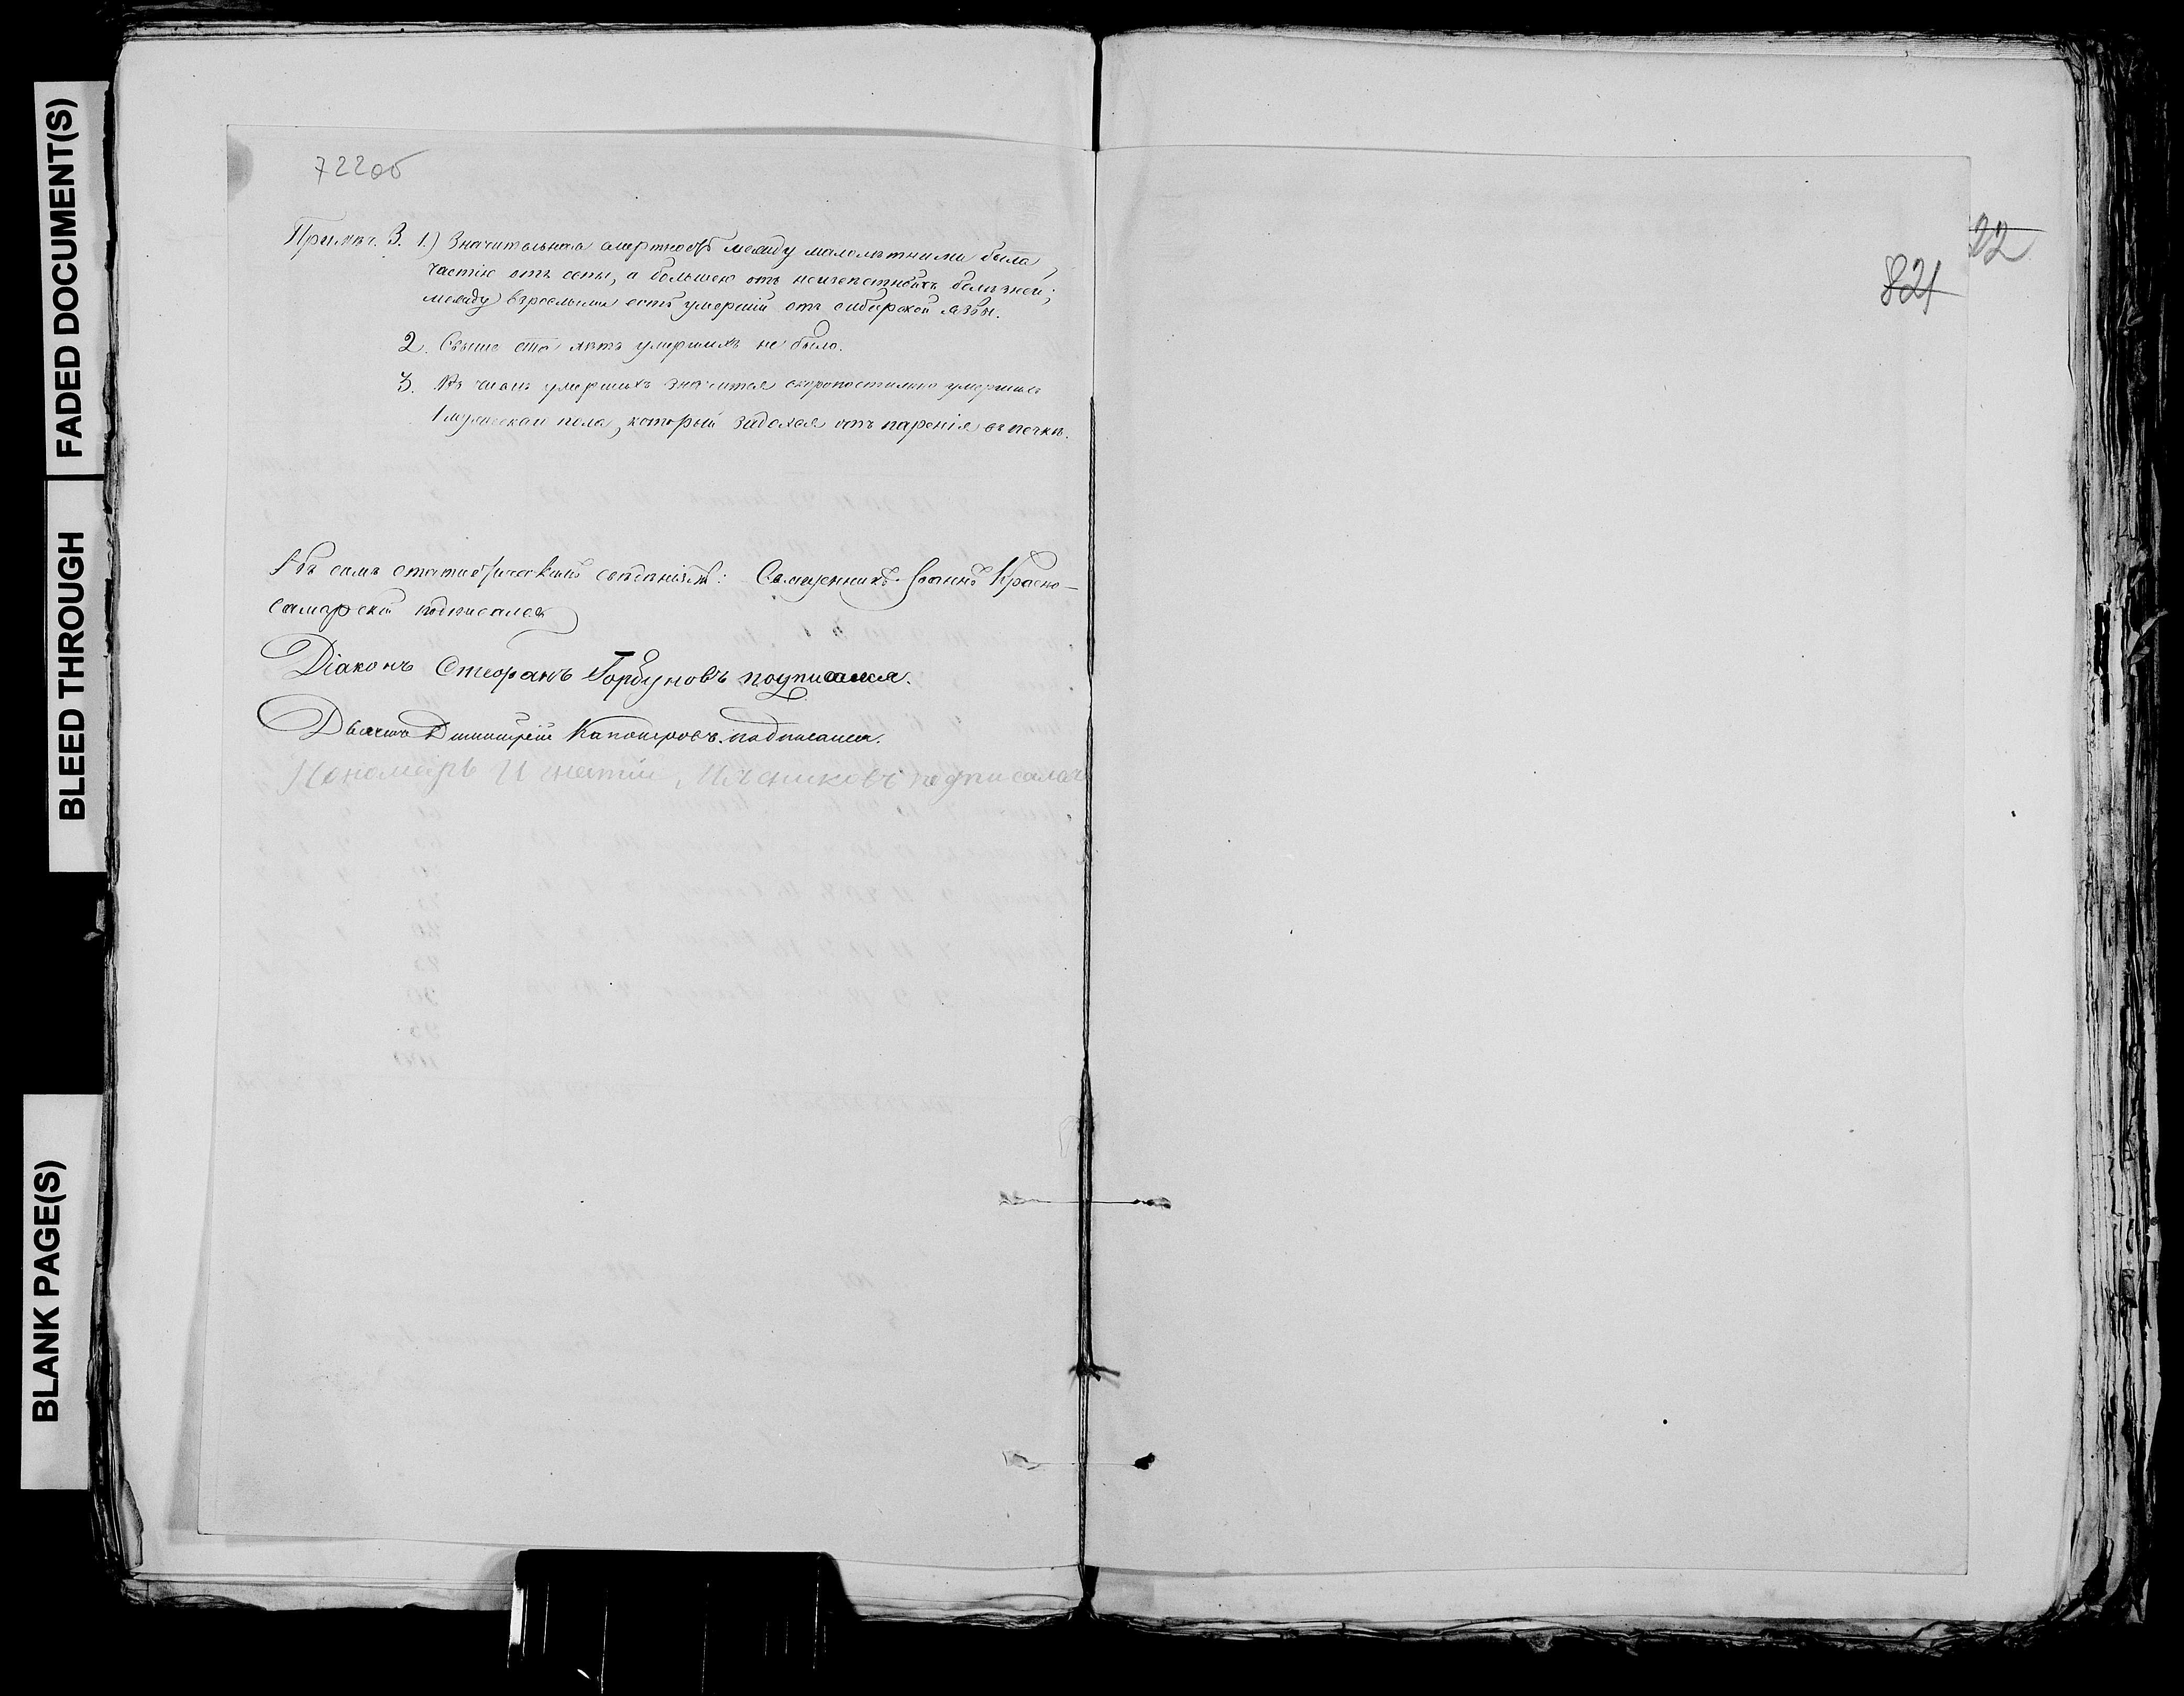 FADED DOCUMENT(S)
BLEED THROUGH
BLANK PAGE(S)
722об
Примѣч. 3. 1.) Значительная смертность между малолѣтними была,
частію отъ оспы, а большею отъ неизвѣстныхъ болѣзней;
между взрослыми есть умершій отъ сибирской язвы.
2. Свыше ста лѣтъ умершихъ не было.
3. Въ числѣ умершихъ значится скоропостижно умершимъ
1 мужескаго пола, который задохся отъ паренія въ печкѣ.
Къ симъ статистическимъ свѣдѣніямъ: Священникъ Іоаннъ Красно-
самарскій подписался
Діаконъ Стефанъ Горбуновъ подписался.
Дьячокъ Димитрій подписался.
Пономарь Игнатій Мясниковъ подписался
22
821